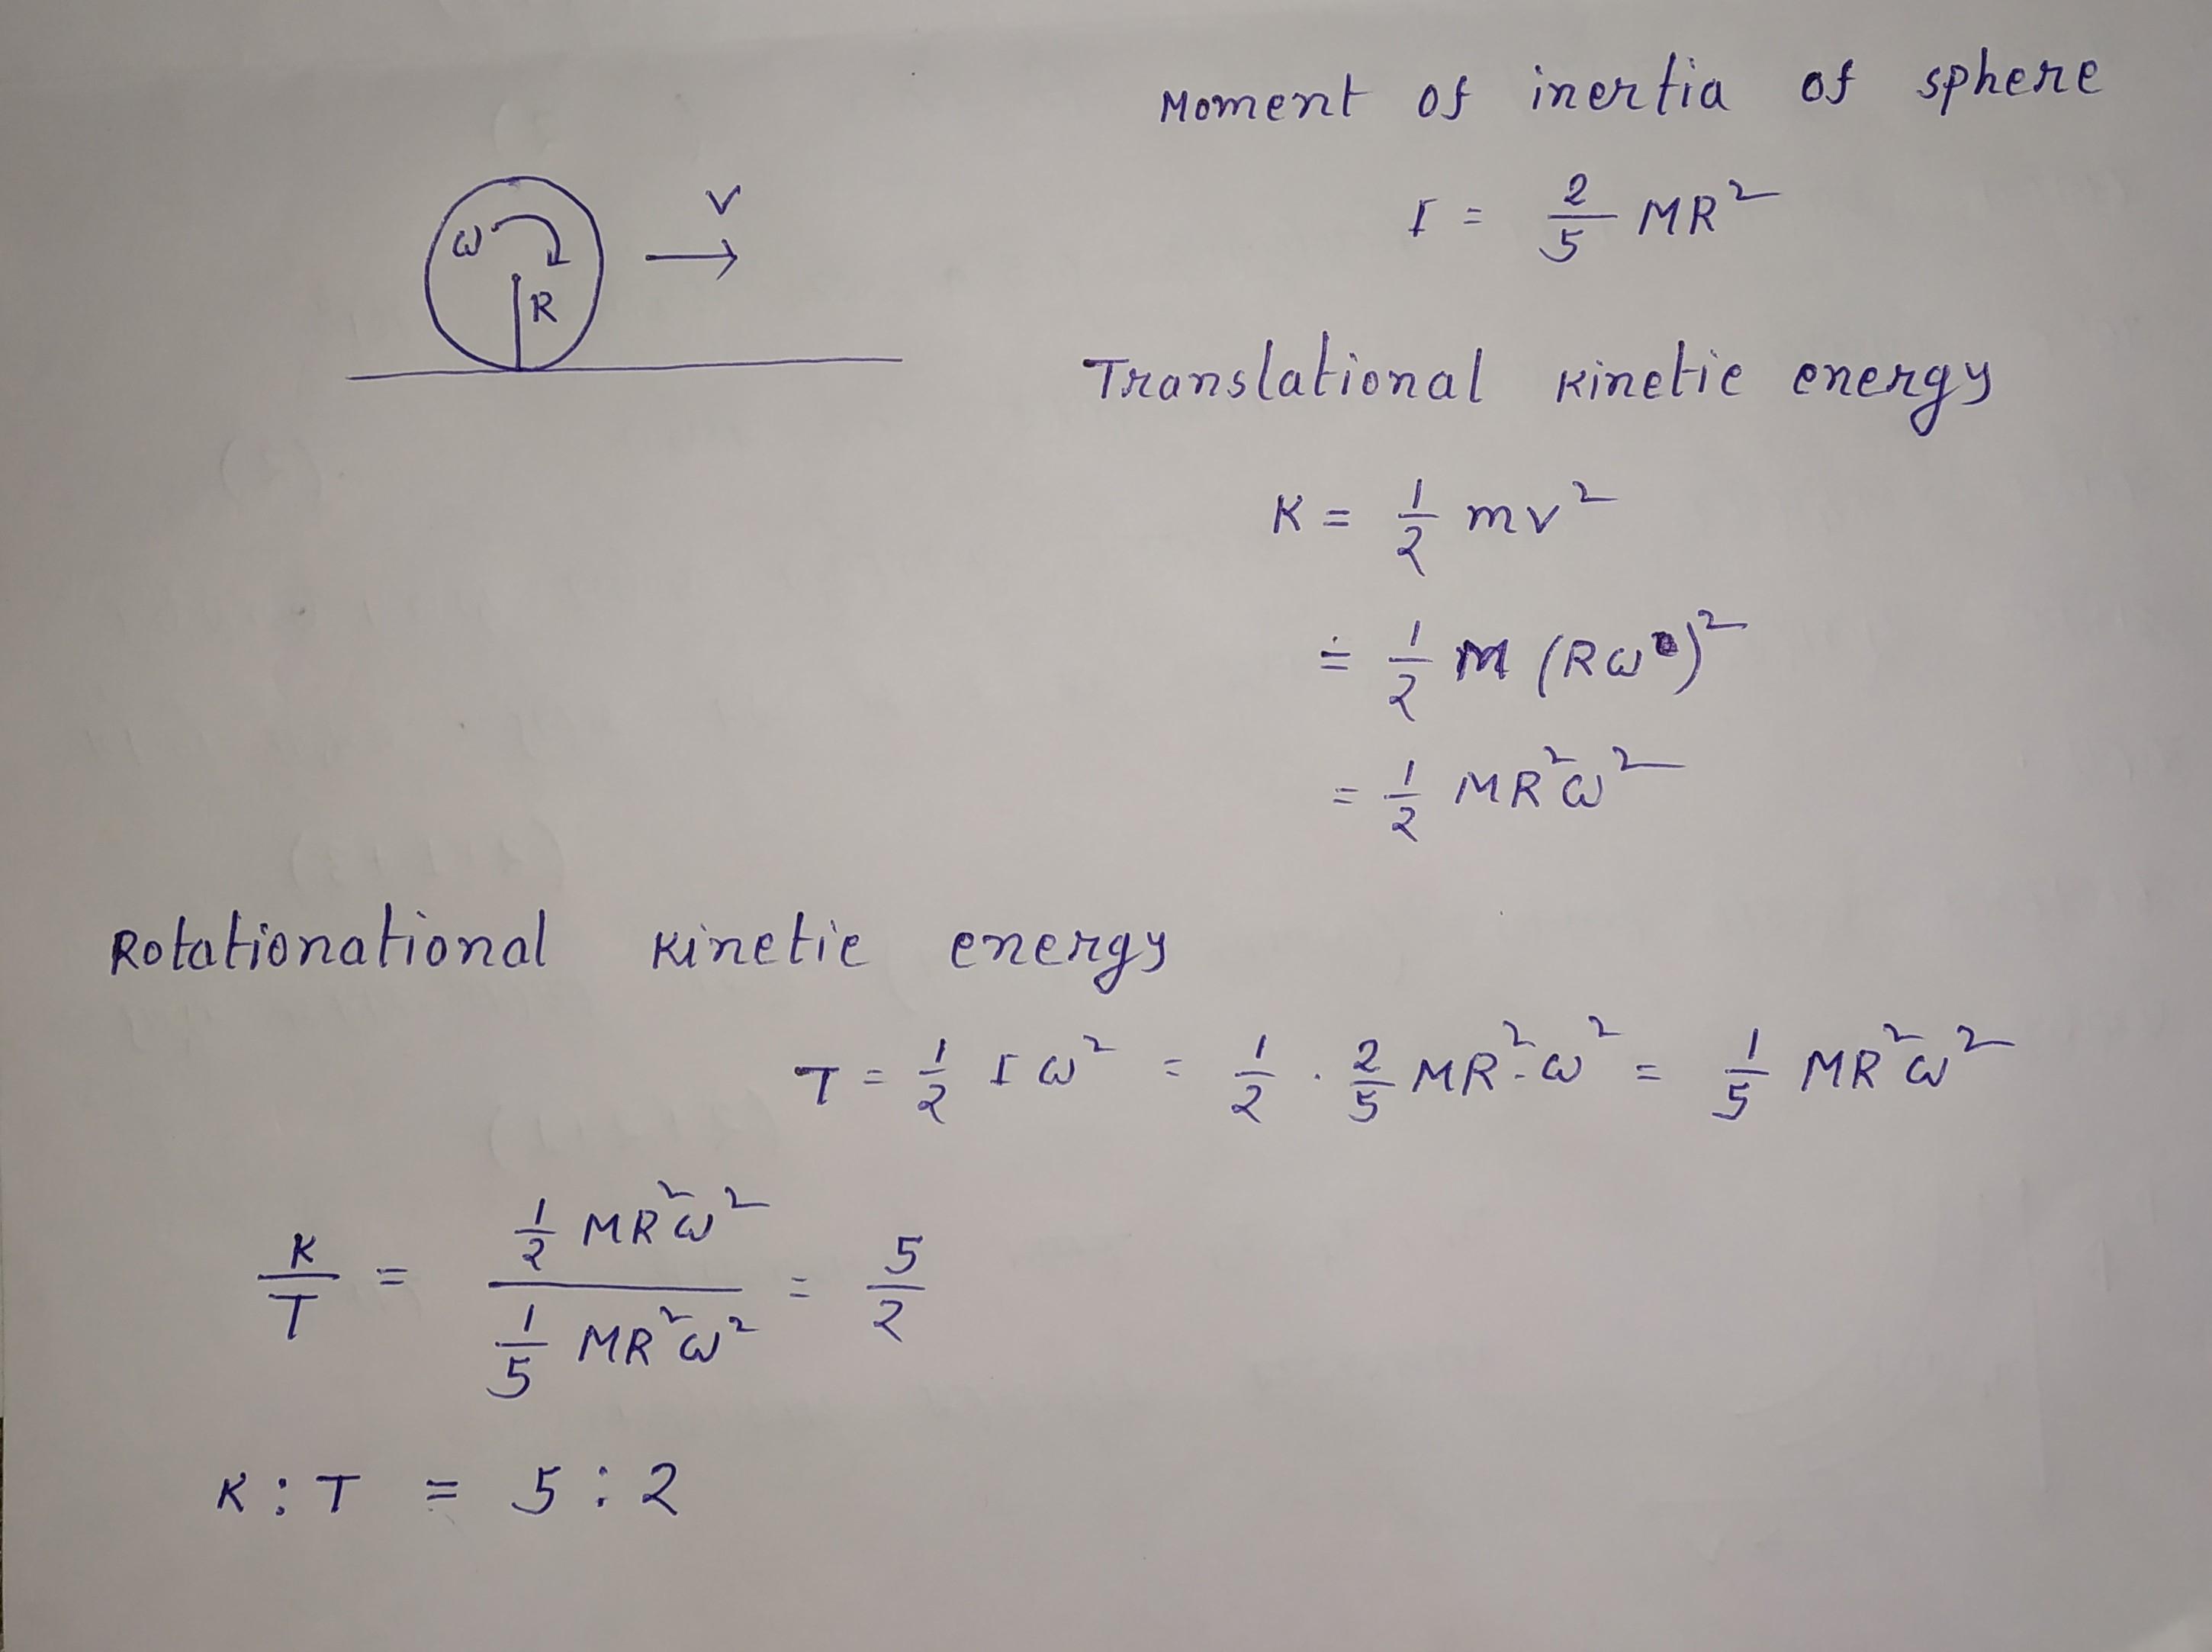 Moment of inertia of sphere
I = 2/5 MR²
ω
R
v
Translational kinetic energy
K = 1/2 mv²
= 1/2 M (Rω)²
= 1/2 MR²ω²
Rotationational kinetic energy
T = 1/2 I ω² = 1/2 . 2/5 MR².ω² = 1/5 MR²ω²
K/T = (1/2 MR²ω²)/(1/5 MR²ω²) = 5/2
K : T = 5 : 2